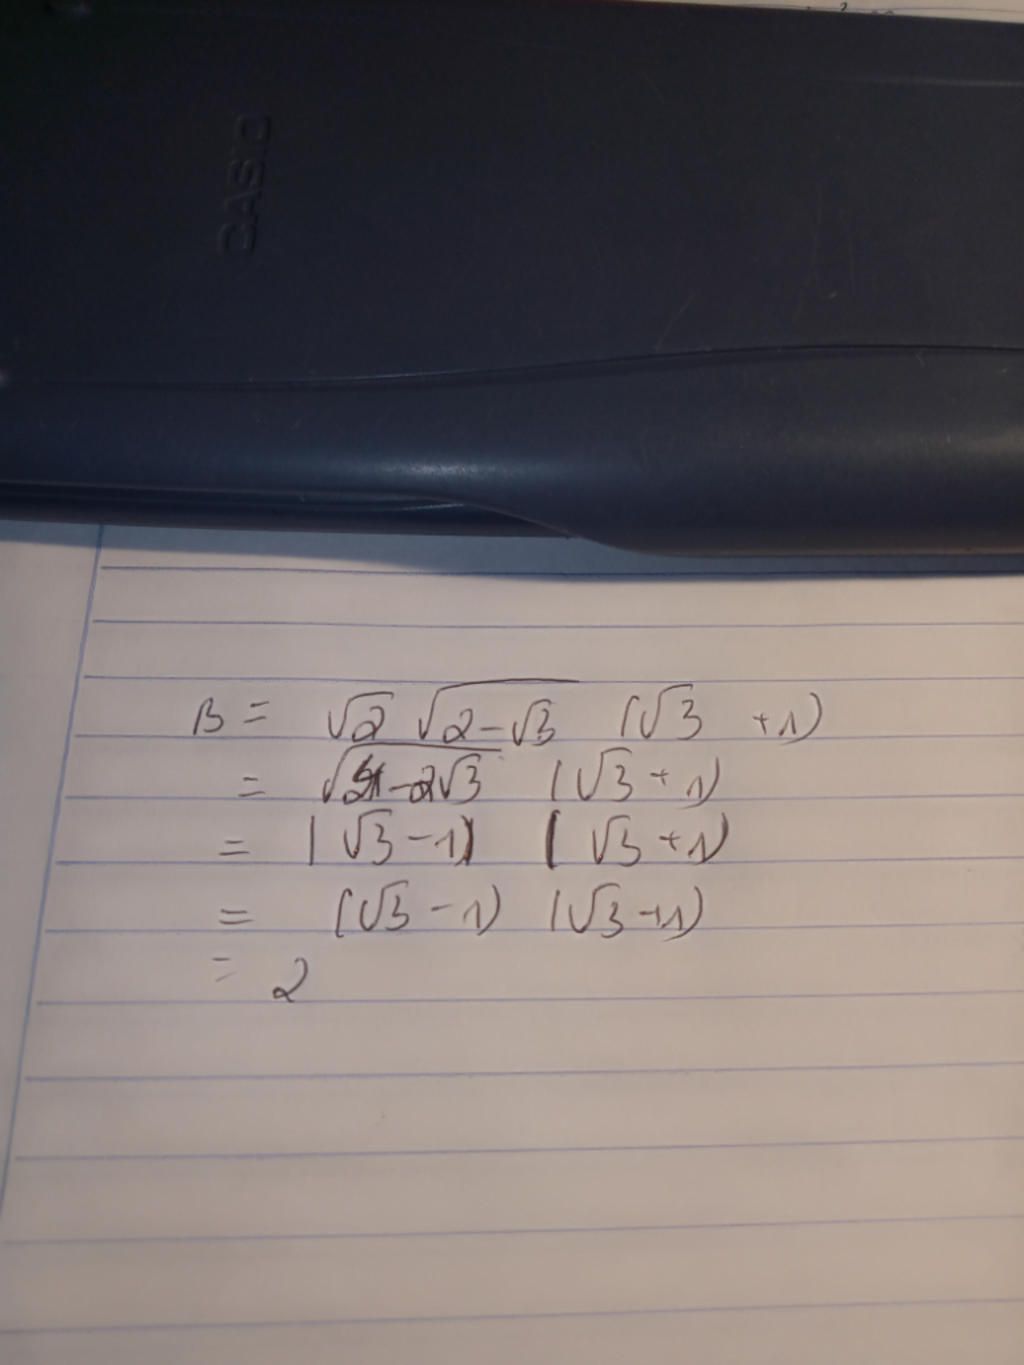 CASIO
B = √2 √2-√3 (√3 +1)
= √4-2√3 (√3+1)
= |√3-1| (√3+1)
= (√3-1) (√3+1)
= 2